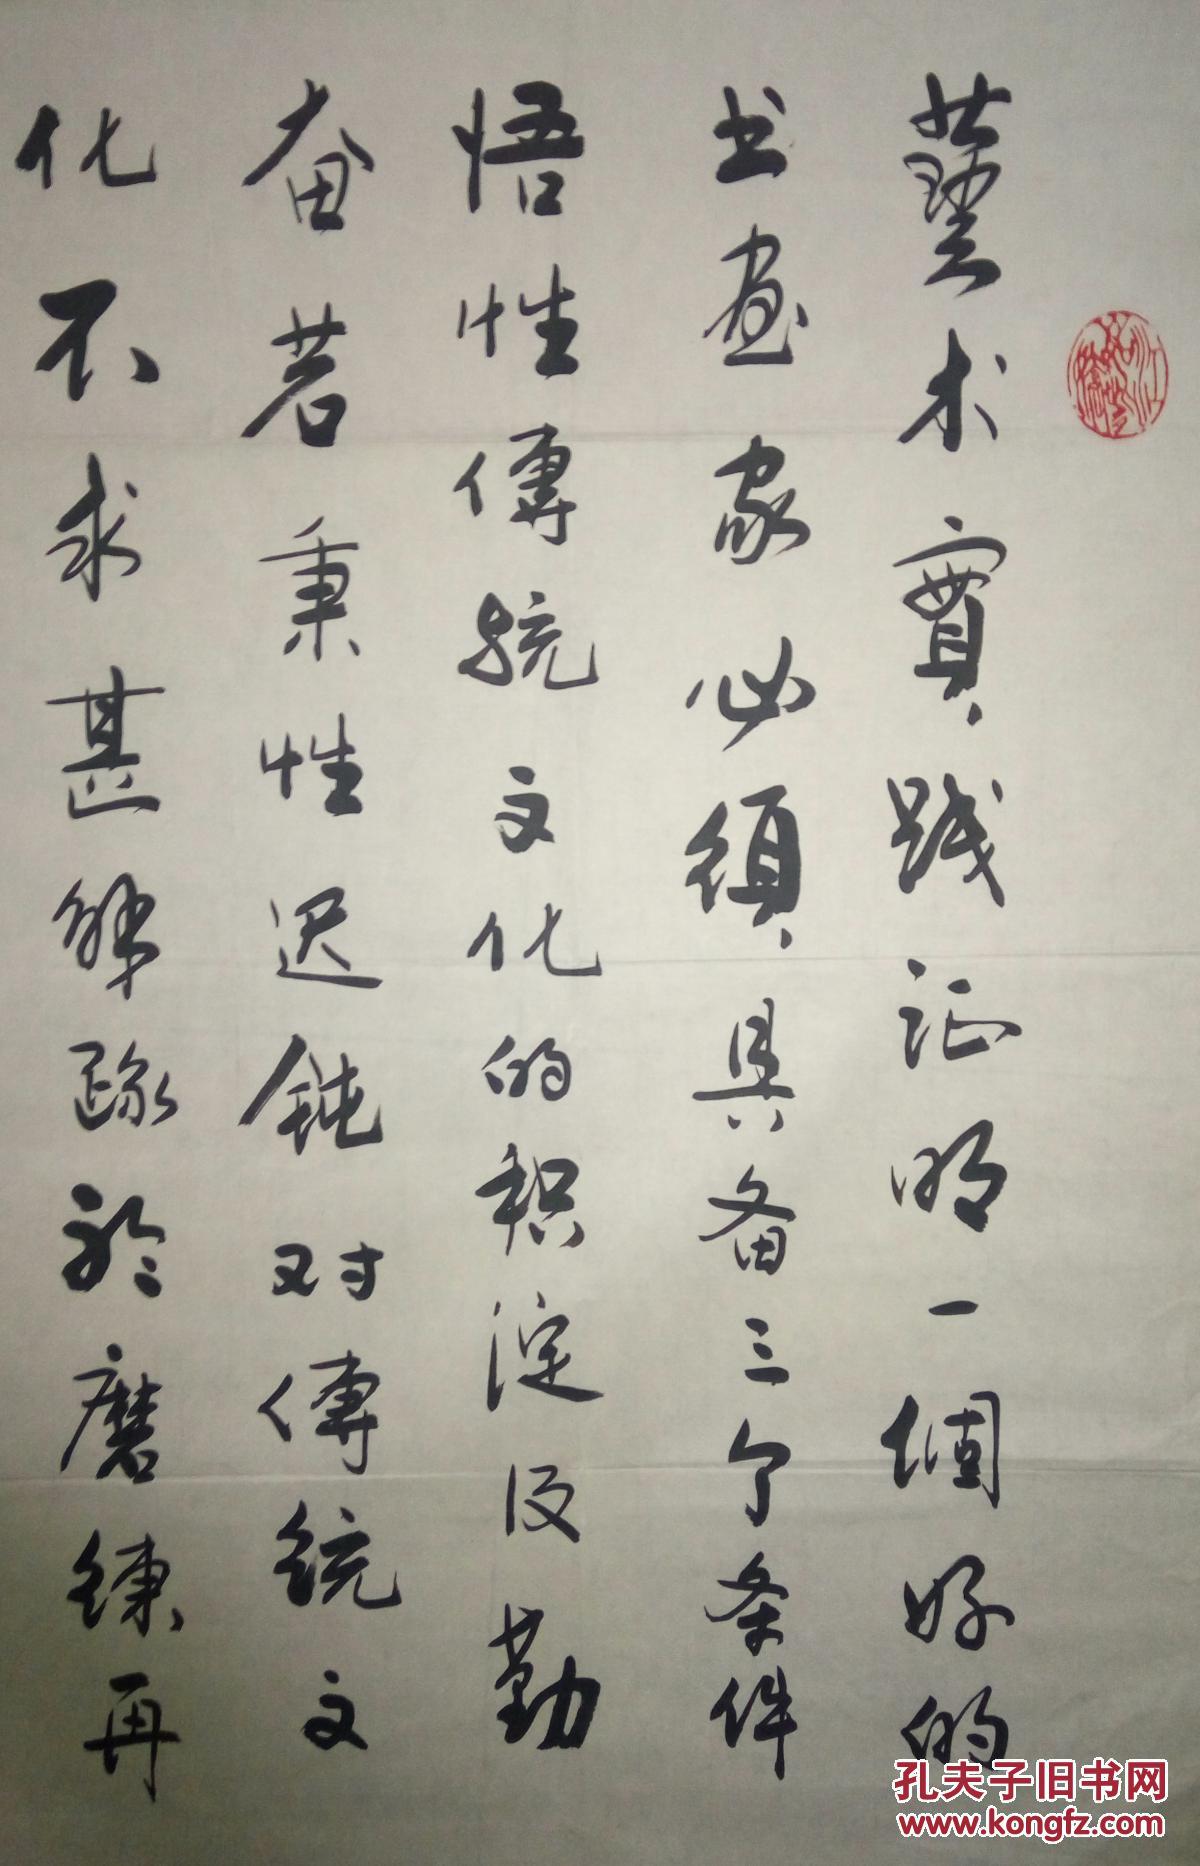 藝术實践证明一個好的
书画家必須具备三个条件
悟性傳統文化的积淀及勤
奋若秉性迟钝对傳統文
化不求甚解疏於磨鍊再
孔夫子旧书网
www.kongfz.com